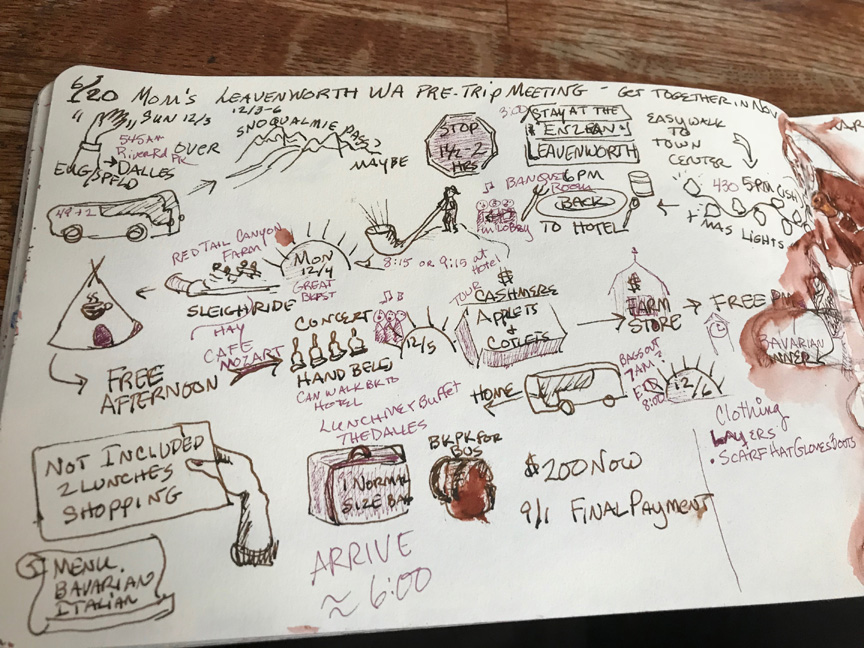 6/3/20 MOM'S LEAVENWORTH WA PRE-TRIP MEETING - GET TOGETHER IN NOV
SUN 12/3
12/3-6
SNOQUALMIE PASS?
MAYBE
545AM
River Rd PK
OVER
EUG/SPFLD
DALLES
STOP
1½-2
HRS
3:00
STAY AT THE
ENZIAN
LEAVENWORTH
EASY WALK
TO
TOWN
CENTER
49+2
♫ BANQUET
ROOM
6PM
in LOBBY
BACK
TO HOTEL
430 5PM (ISH)
+ MAS LIGHTS
RED TAIL CANYON
FARM
MON
12/4
GREAT
BKFST
8:15 OR 9:15 at
Hotel
SLEIGH RIDE
HAY
CAFE
MOZART
FREE
AFTERNOON
CONCERT
HAND BELLS
CAN WALK BK TO
HOTEL
12/5
TOUR
$
CASHMERE
APPLETS
&
COTLETS
$
FARM
STORE
FREE PM
BAVARIAN
DINNER
BAGS OUT
7AM?
8:00
12/6
HOME
LUNCH MEXBUFFET
THE DALLES
NOT INCLUDED
2 LUNCHES
SHOPPING
1 NORMAL
SIZE BAG
BKPK FOR
BUS
$200 NOW
9/1 FINAL PAYMENT
Clothing
LAYERS
• SCARF HAT GLOVES BOOTS
MENU.
BAVARIAN
ITALIAN
ARRIVE
≈ 6:00